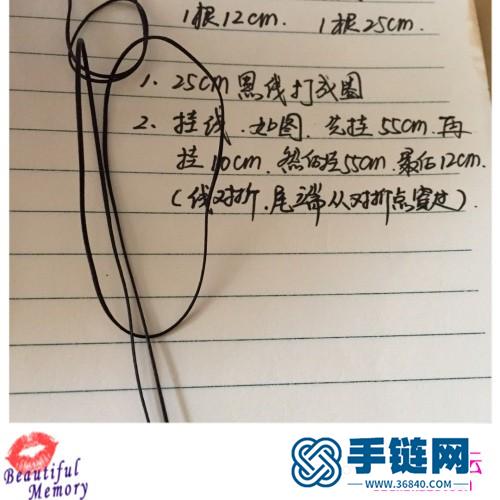 1根12cm. 1根25cm.
1. 25cm黑线打成圈
2. 挂线.如图.先挂55cm.再
挂10cm.然后挂55cm.最后12cm.
(线对折.尾端从对折点穿过).
Beautiful
Memory
手链网
WWW.36840.COM